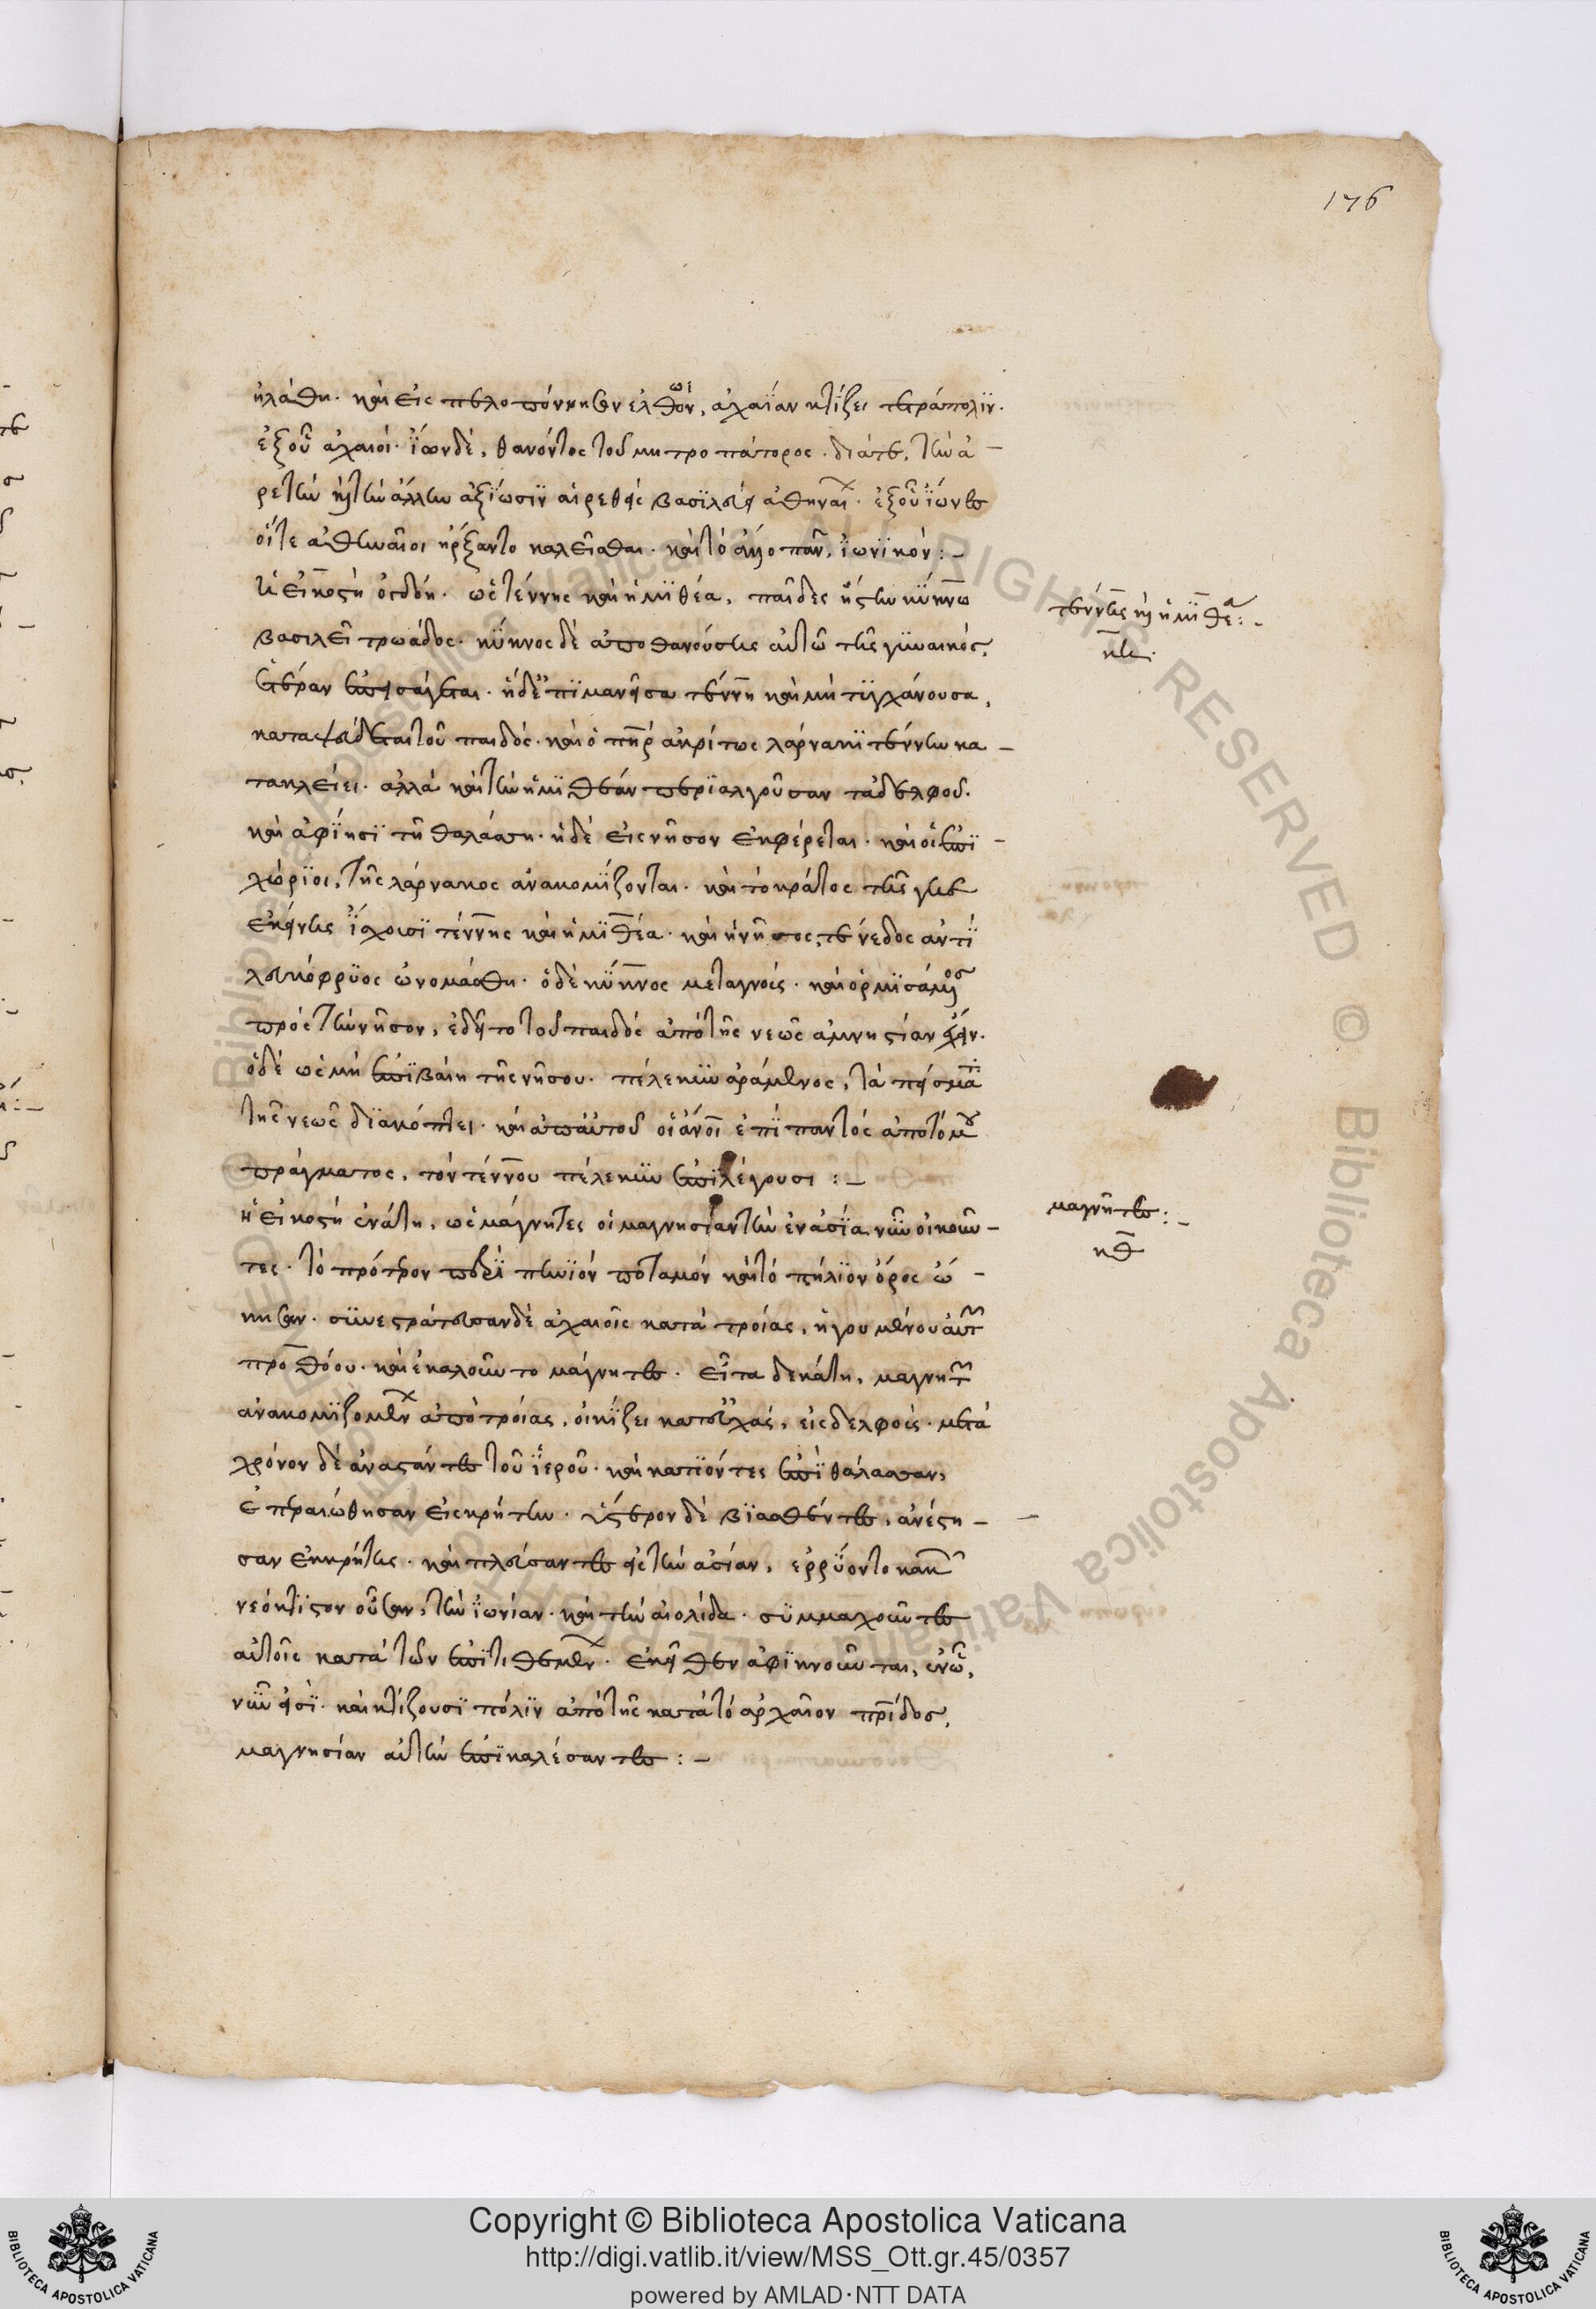 176
ἠλάθη. καὶ εἰς πελοπόννησον ἐλθὼν, ἀχαΐαν κτίζει τετράπολϊν.
ἐξοὗ ἀχαιοί. ἴων δὲ, θανόντος τοῦ μητροπάτορος. διά τε, τὴν ἀ-
ρετὴν κ τὴν ἄλλην ἀξΐωσϊν αἱρεθεὶς βασϊλεύει ἀθηναί. ἐξοὗ ἴωνες
οἵτε ἀθηναῖοι ἤρξαντο καλεῖσθαι. καὶ τὸ ἄλλο πᾶν, ϊωνϊκόν :-
Ἡ εἰκοστὴ ὀγδόη. ὡς τέννης καὶ ἡμϊθέα, παῖδες ἤστην κΰκνω
βασιλεῖ τρωάδος. κΰκνος δὲ ἀποθανούσης αὐτῶ τῆς γϋναικός,
ἑτέραν ἐπεισάγεται. ἡ δὲ ἐπϊμανεῖσα τέννη καὶ μὴ τϋγχάνουσα,
καταψεύδεται τοῦ παιδός. καὶ ὁ πηρ ἀκρίτως λάρνακϊ τέννην κα-
τακλείει. ἀλλὰ καὶ τὴν ἡμϊθέαν περϊαλγοῦσαν τἀδελφοῦ.
καὶ ἀφΐησϊ τῆ θαλάσση. ἡ δὲ εἰς νῆσον ἐκφέρεται. καὶ οἱ ἐπϊ-
χώρϊοι, τῆς λάρνακος ἀνακομΐζονται. καὶ τὸ κράτος τῆς γῆς
ἐκείνης ἴσχουσϊ τέννης καὶ ἡμϊθέα. καὶ ἡ νῆσος, τένεδος ἀντϊ
λευκόφρϋος ὠνομάσθη. ὁ δὲ κΰκνος μεταγνοὺς. καὶ ὁρμϊσάμενος
πρὸς τὴν νῆσον, ἐδεῖτο τοῦ παιδὸς ἀπὸ τῆς νεὼς ἀμνηστίαν
ὁ δὲ ὡς μὴ ἐπϊβαίη τῆς νήσου. πέλεκϋν ἀράμενος, τὰ πείσματα
τῆς νεὼς δϊακόπτει. καὶ ἀπ᾽ αὐτοῦ οἱ ἄνοι ἐπῒ παντὸς ἀποτόμου
πράγματος, τὸν τέννου πέλεκϋν ἐπϊλέγουσι :-
Ἡ εἰκοστὴ ἐνάτη, ὡς μάγνητες οἱ μαγνησίαν τὴν ἐν ἀσΐα νῦν οἰκοῦν-
τες. τὸ πρότερον περὶ πηνϊὸν ποταμὸν καὶ τὸ πήλϊον ὄρος ὤ-
κησαν. σϋνεστράτευσαν δὲ ἀχαιοῖς κατὰ τροίας, ἡγουμένου αὐτῶν
προθόου. καὶ ἐκαλοῦντο μάγνητες. εἶτα δεκάτη, μαγνητῶν
ἀνακομϊζομένων ἀπὸ τροίας, οἰκΐζει κατ᾽ εὐχὰς, εἰς δελφούς. μετὰ
χρόνον δὲ ἀναστάντες τοῦ ἱεροῦ. καὶ κατϊόντες ἐπῒ θάλασσαν,
ἐπεραιώθησαν εἰς κρήτην. ὕστερον δὲ βϊασθέντες, ἀνέστη-
σαν ἐκ κρήτης. καὶ πλεύσαντες εἰς τὴν ἀσίαν, ἐρρΰοντο κακῶν
νεόκτϊστον οὖσαν, τὴν ϊωνίαν. καὶ τὴν αἰολίδα. σϋμμαχοῦντες
αὐτοῖς κατὰ τῶν ἐπϊτιθεμένων. ἐκεῖθεν ἀφϊκνοῦνται, ἐν ὧ,
νῦν εἰσῒ. καὶ κτίζουσϊ πόλϊν ἀπὸ τῆς κατὰ τὸ ἀρχαῖον πρίδος,
μαγνησίαν αὐτὴν ἐπϊκαλέσαντες :-
τέννης κ ἡμϊθέα :-
κη.
μαγνῆτες :-
κθ
Copyright © Biblioteca Apostolica Vaticana
http://digi.vatlib.it/view/MSS_Ott.gr.45/0357
powered by AMLAD·NTT DATA